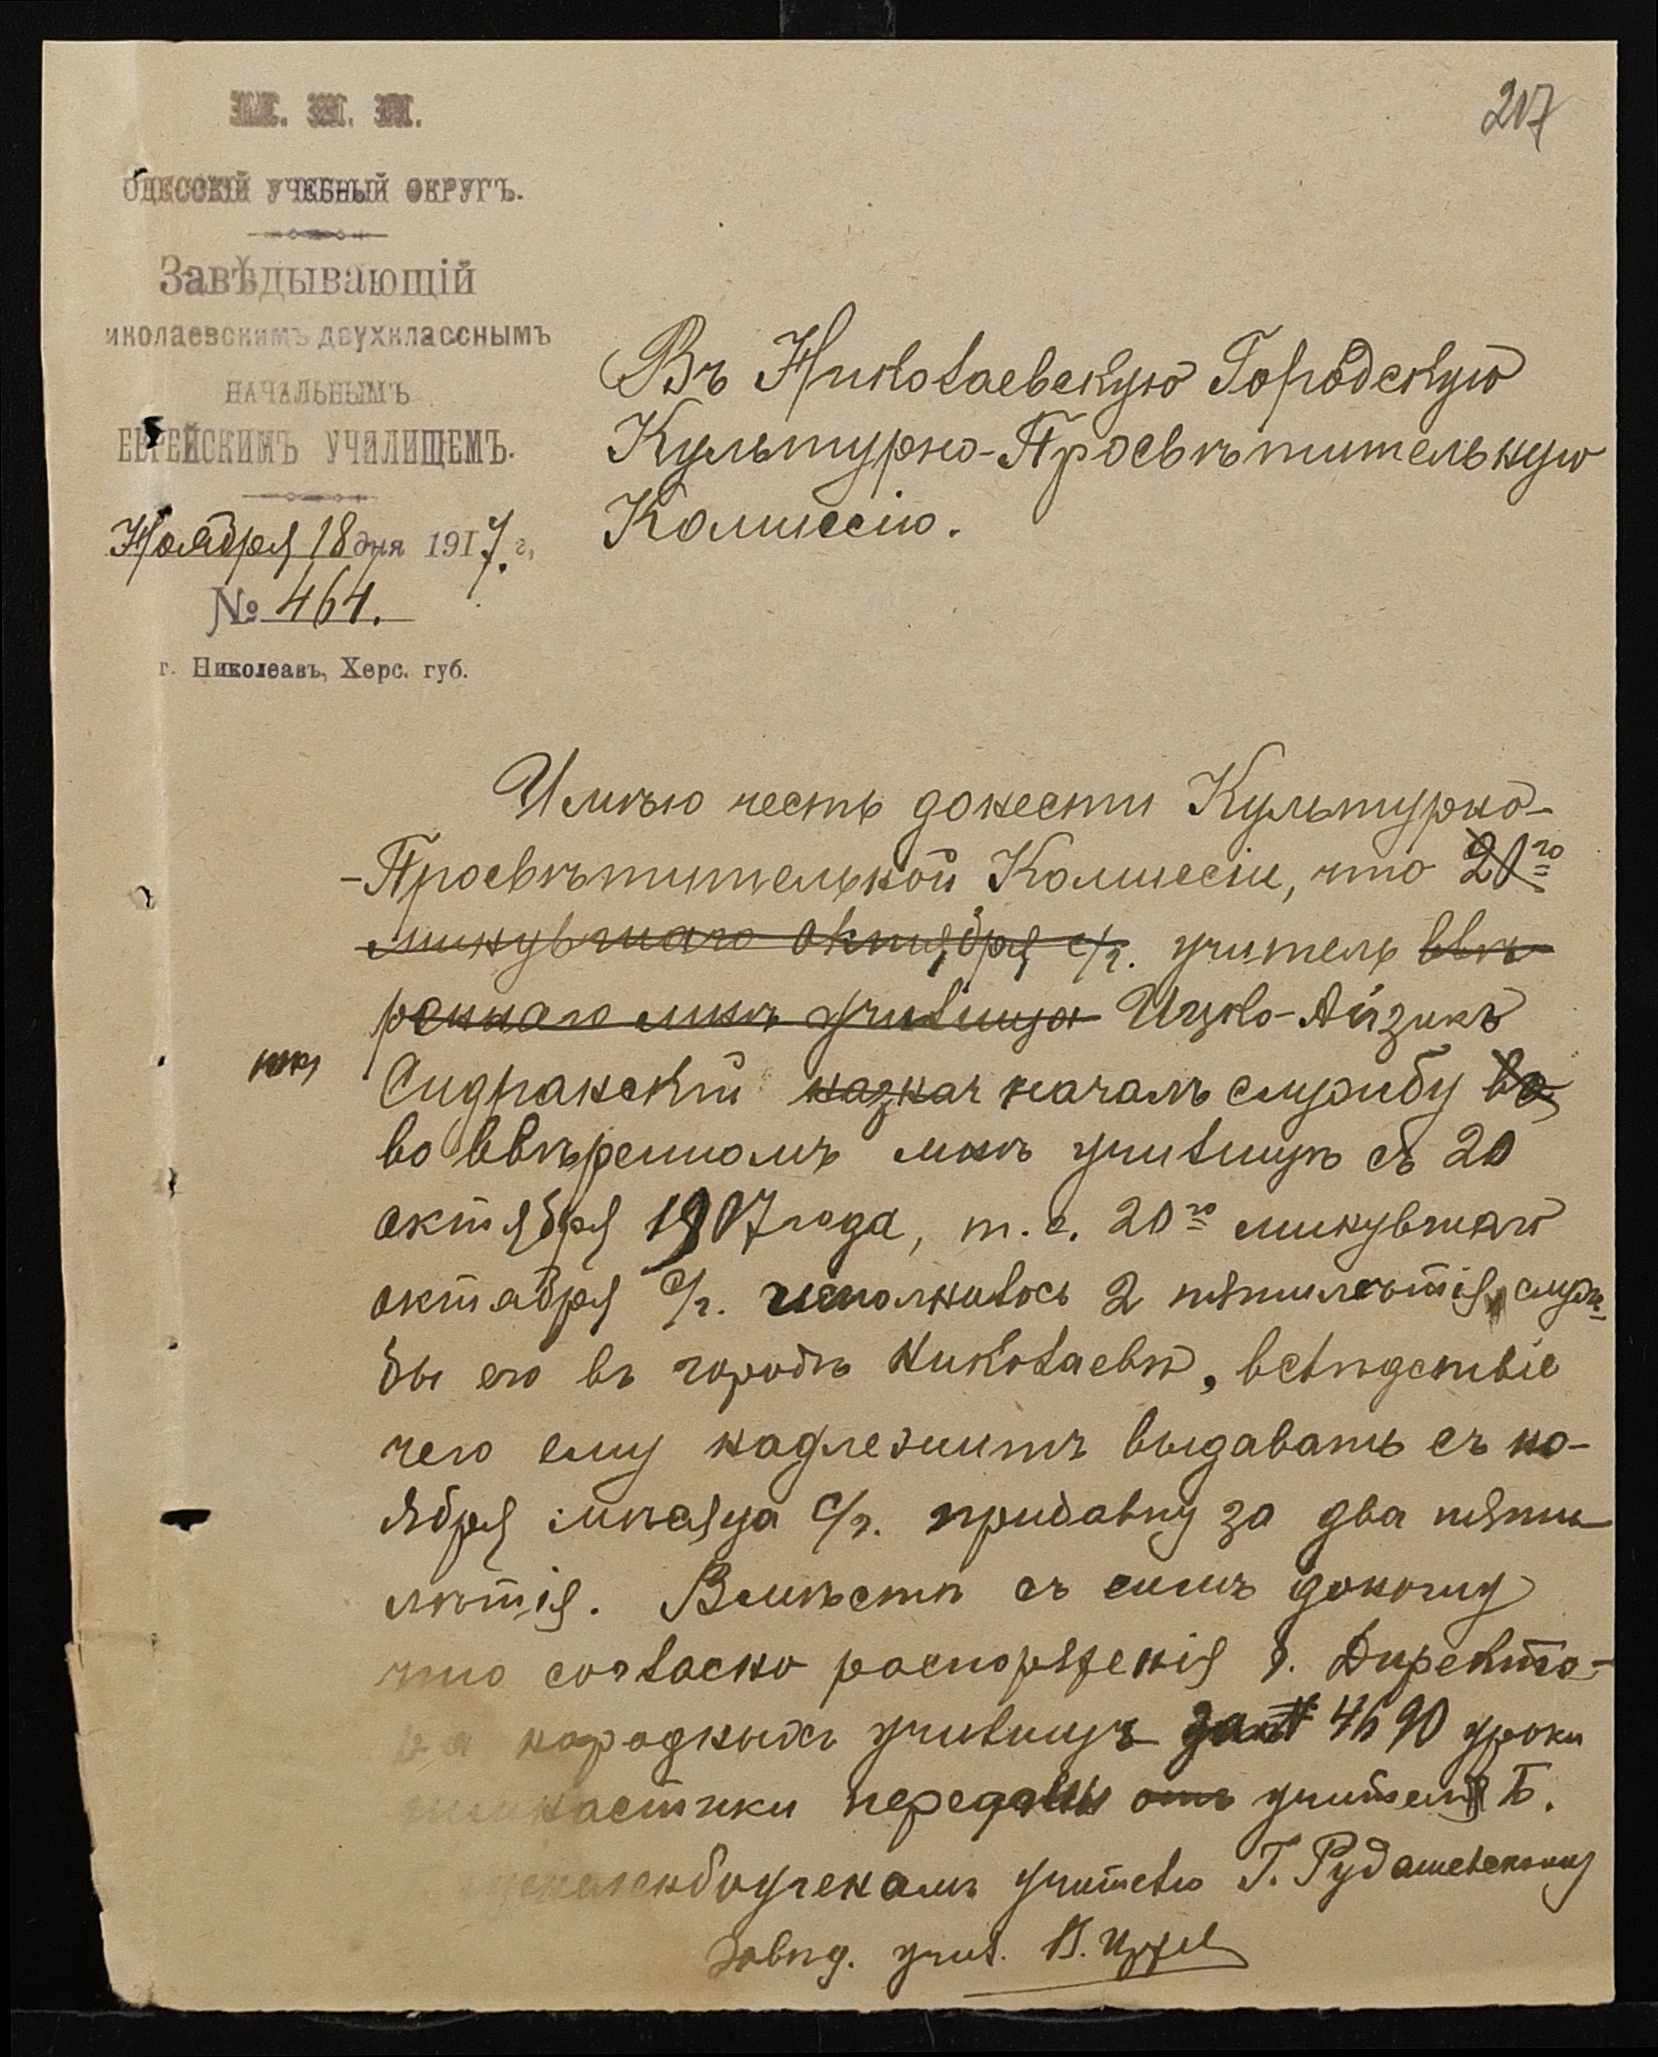 217
М. Н. П.
ОДЕССКІЙ УЧЕБНЫЙ ОКРУГЪ.
Завѣдывающій
иколаевскимъ двухкласснымъ
НАЧАЛЬНЫМЪ
ЕВРЕЙСКИМЪ УЧИЛИЩЕМЪ.
Ноября 18 дня 1917 г.
№ 464.
г. Николеавъ, Херс. губ.
Въ Николаевскую Городскую
Культурно-Просвѣтительную
Комиссію.
Имѣю честь донести Культурно-
-Просвѣтительной Комиссіи, что 20го
минувшаго октября с/г. учитель ввѣ
реннаго мнѣ училища Ицко-Айзикъ
Сидранскій назнач началъ службу во
во ввѣренномъ мнѣ училищѣ съ 20
октября 1907 года, т. е. 20го минувшаго
октября с/г. исполнилось 2 пятилѣтія служ-
бы его въ городѣ Николаевѣ, вслѣдствіе
чего ему надлежитъ выдавать съ но-
ября мѣсяца с/г. прибавку за два пяти
лѣтія. Вмѣстѣ съ симъ доношу
что согласно распоряженія г. Директо-
ра народныхъ училищъ за № 4690 уроки
гимнастики переданы отъ учителя Б.
учителю Г. Рудашевскому
Завѣд. учил.